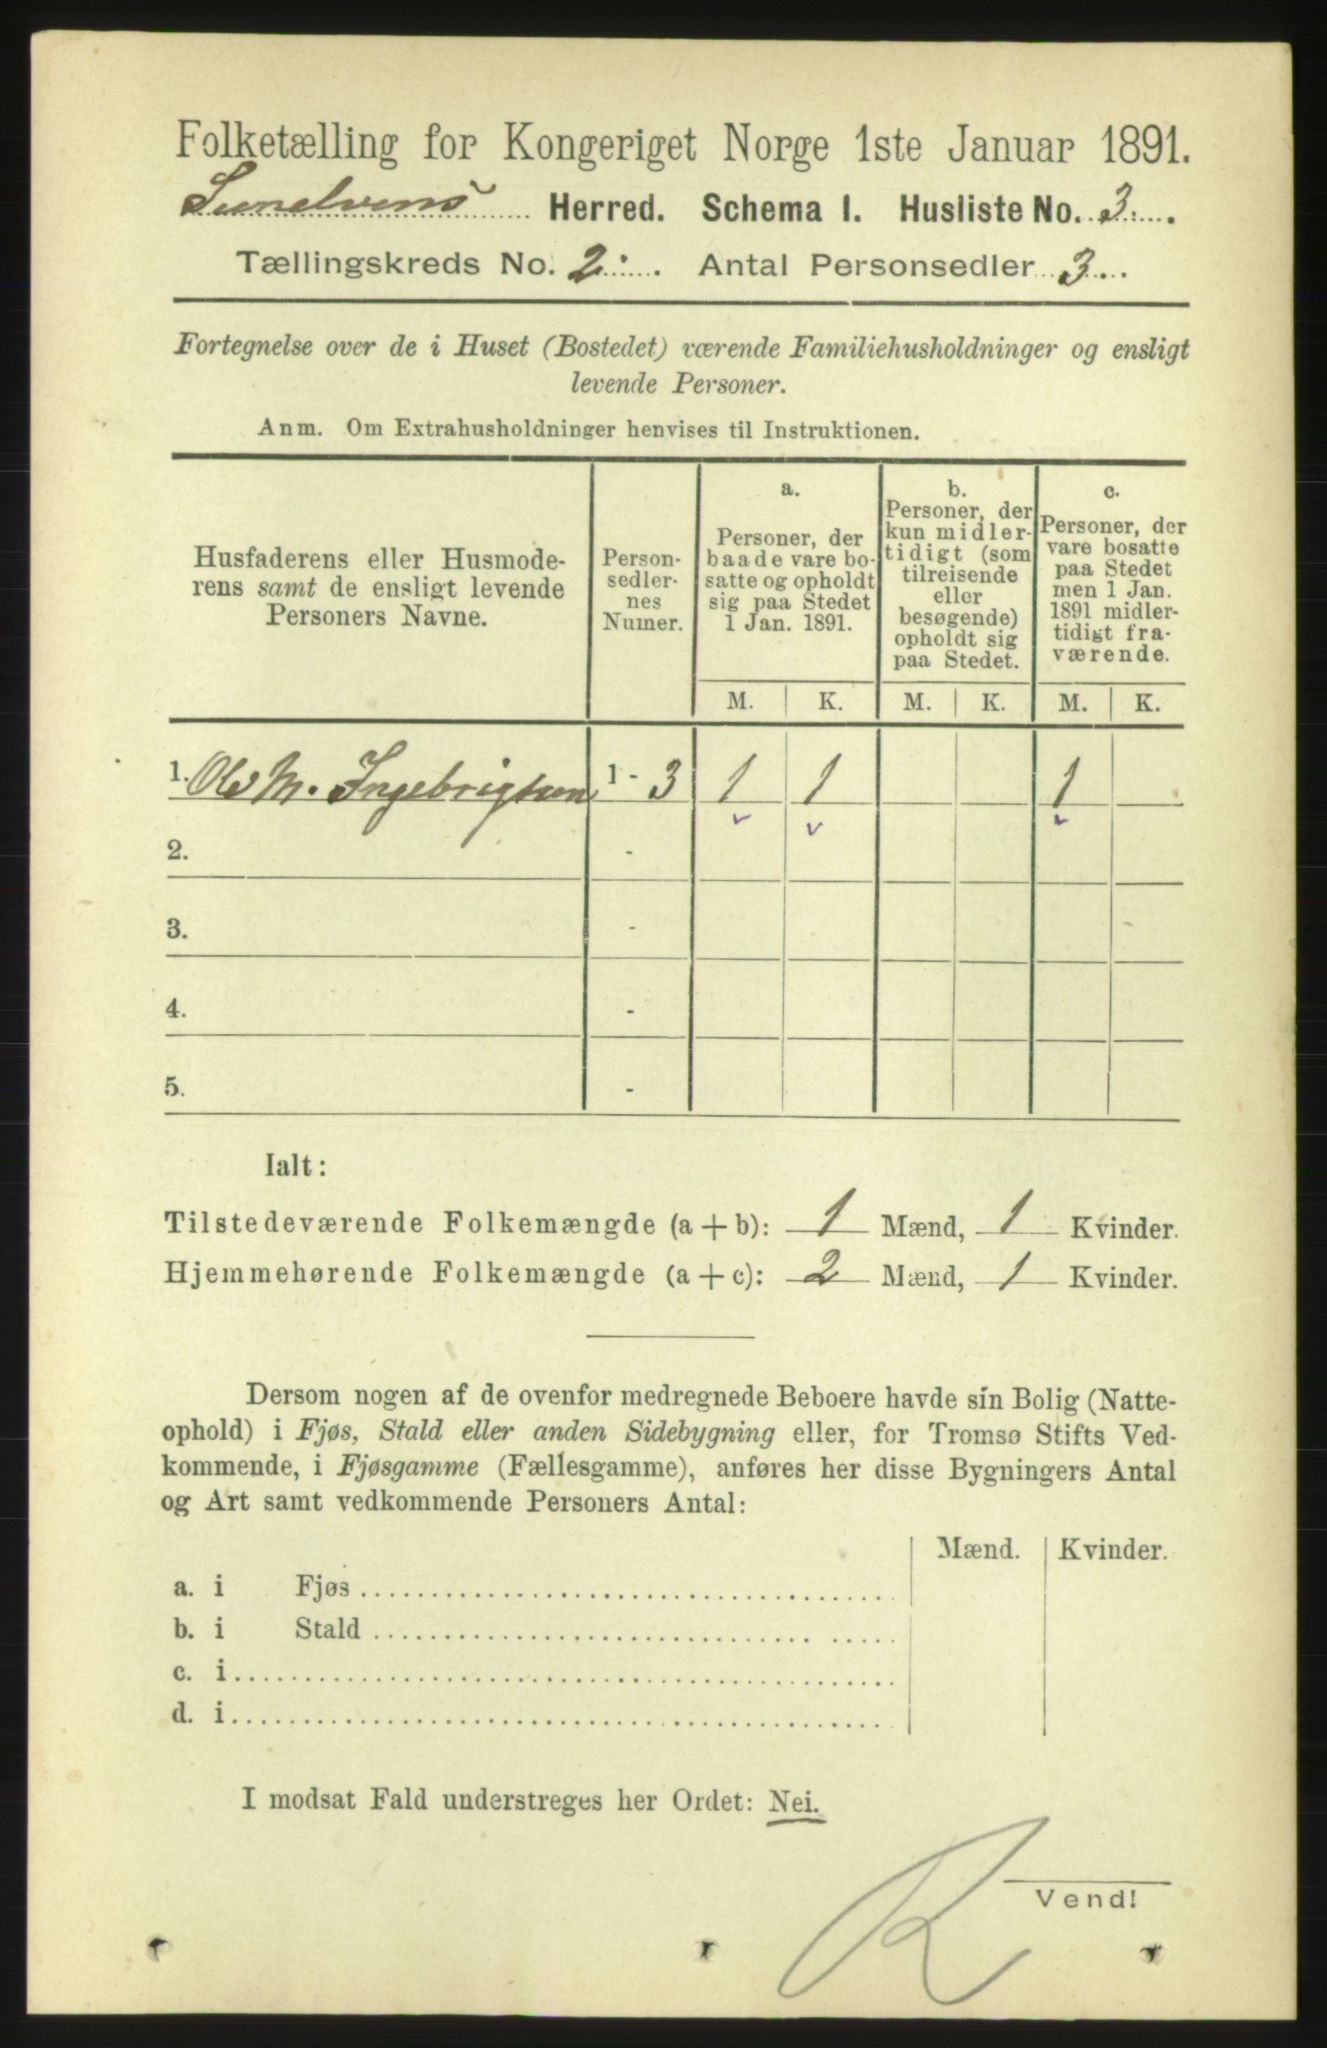 Folketælling for Kongeriget Norge 1ste Januar 1891.
Sunelvens Herred. Schema I. Husliste No. 3.
Tællingskreds No. 2. Antal Personsedler 3.
Fortegnelse over de i Huset (Bostedet) værende Familiehusholdninger og ensligt
levende Personer.
Anm. Om Extrahusholdninger henvises til Instruktionen.
Husfaderens eller Husmode-
rens samt de ensligt levende
Personers Navne.
Person-
sedler-
nes
Numer.
a.
Personer, der
baade vare bo-
satte og opholdt
sig paa Stedet
1 Jan. 1891.
b.
Personer, der
kun midler-
tidigt (som
tilreisende
eller
besøgende)
opholdt sig
paa Stedet.
c.
Personer, der
vare bosatte
paa Stedet
men 1 Jan.
1891 midler-
tidigt fra-
værende.
M. K. M. K. M. K.
1. Ole M. Ingebrigtsen 1 - 3 1 1 1
2. -
3. -
4. -
5. -
Ialt:
Tilstedeværende Folkemængde (a + b): 1 Mænd, 1 Kvinder.
Hjemmehørende Folkemængde (a + c): 2 Mænd, 1 Kvinder.
Dersom nogen af de ovenfor medregnede Beboere havde sin Bolig (Natte-
ophold) i Fjøs, Stald eller anden Sidebygning eller, for Tromsø Stifts Ved-
kommende, i Fjøsgamme (Fællesgamme), anføres her disse Bygningers Antal
og Art samt vedkommende Personers Antal:
Mænd. Kvinder.
a. i Fjøs
b. i Stald
c. i
d. i
I modsat Fald understreges her Ordet: Nei.
Vend!
R